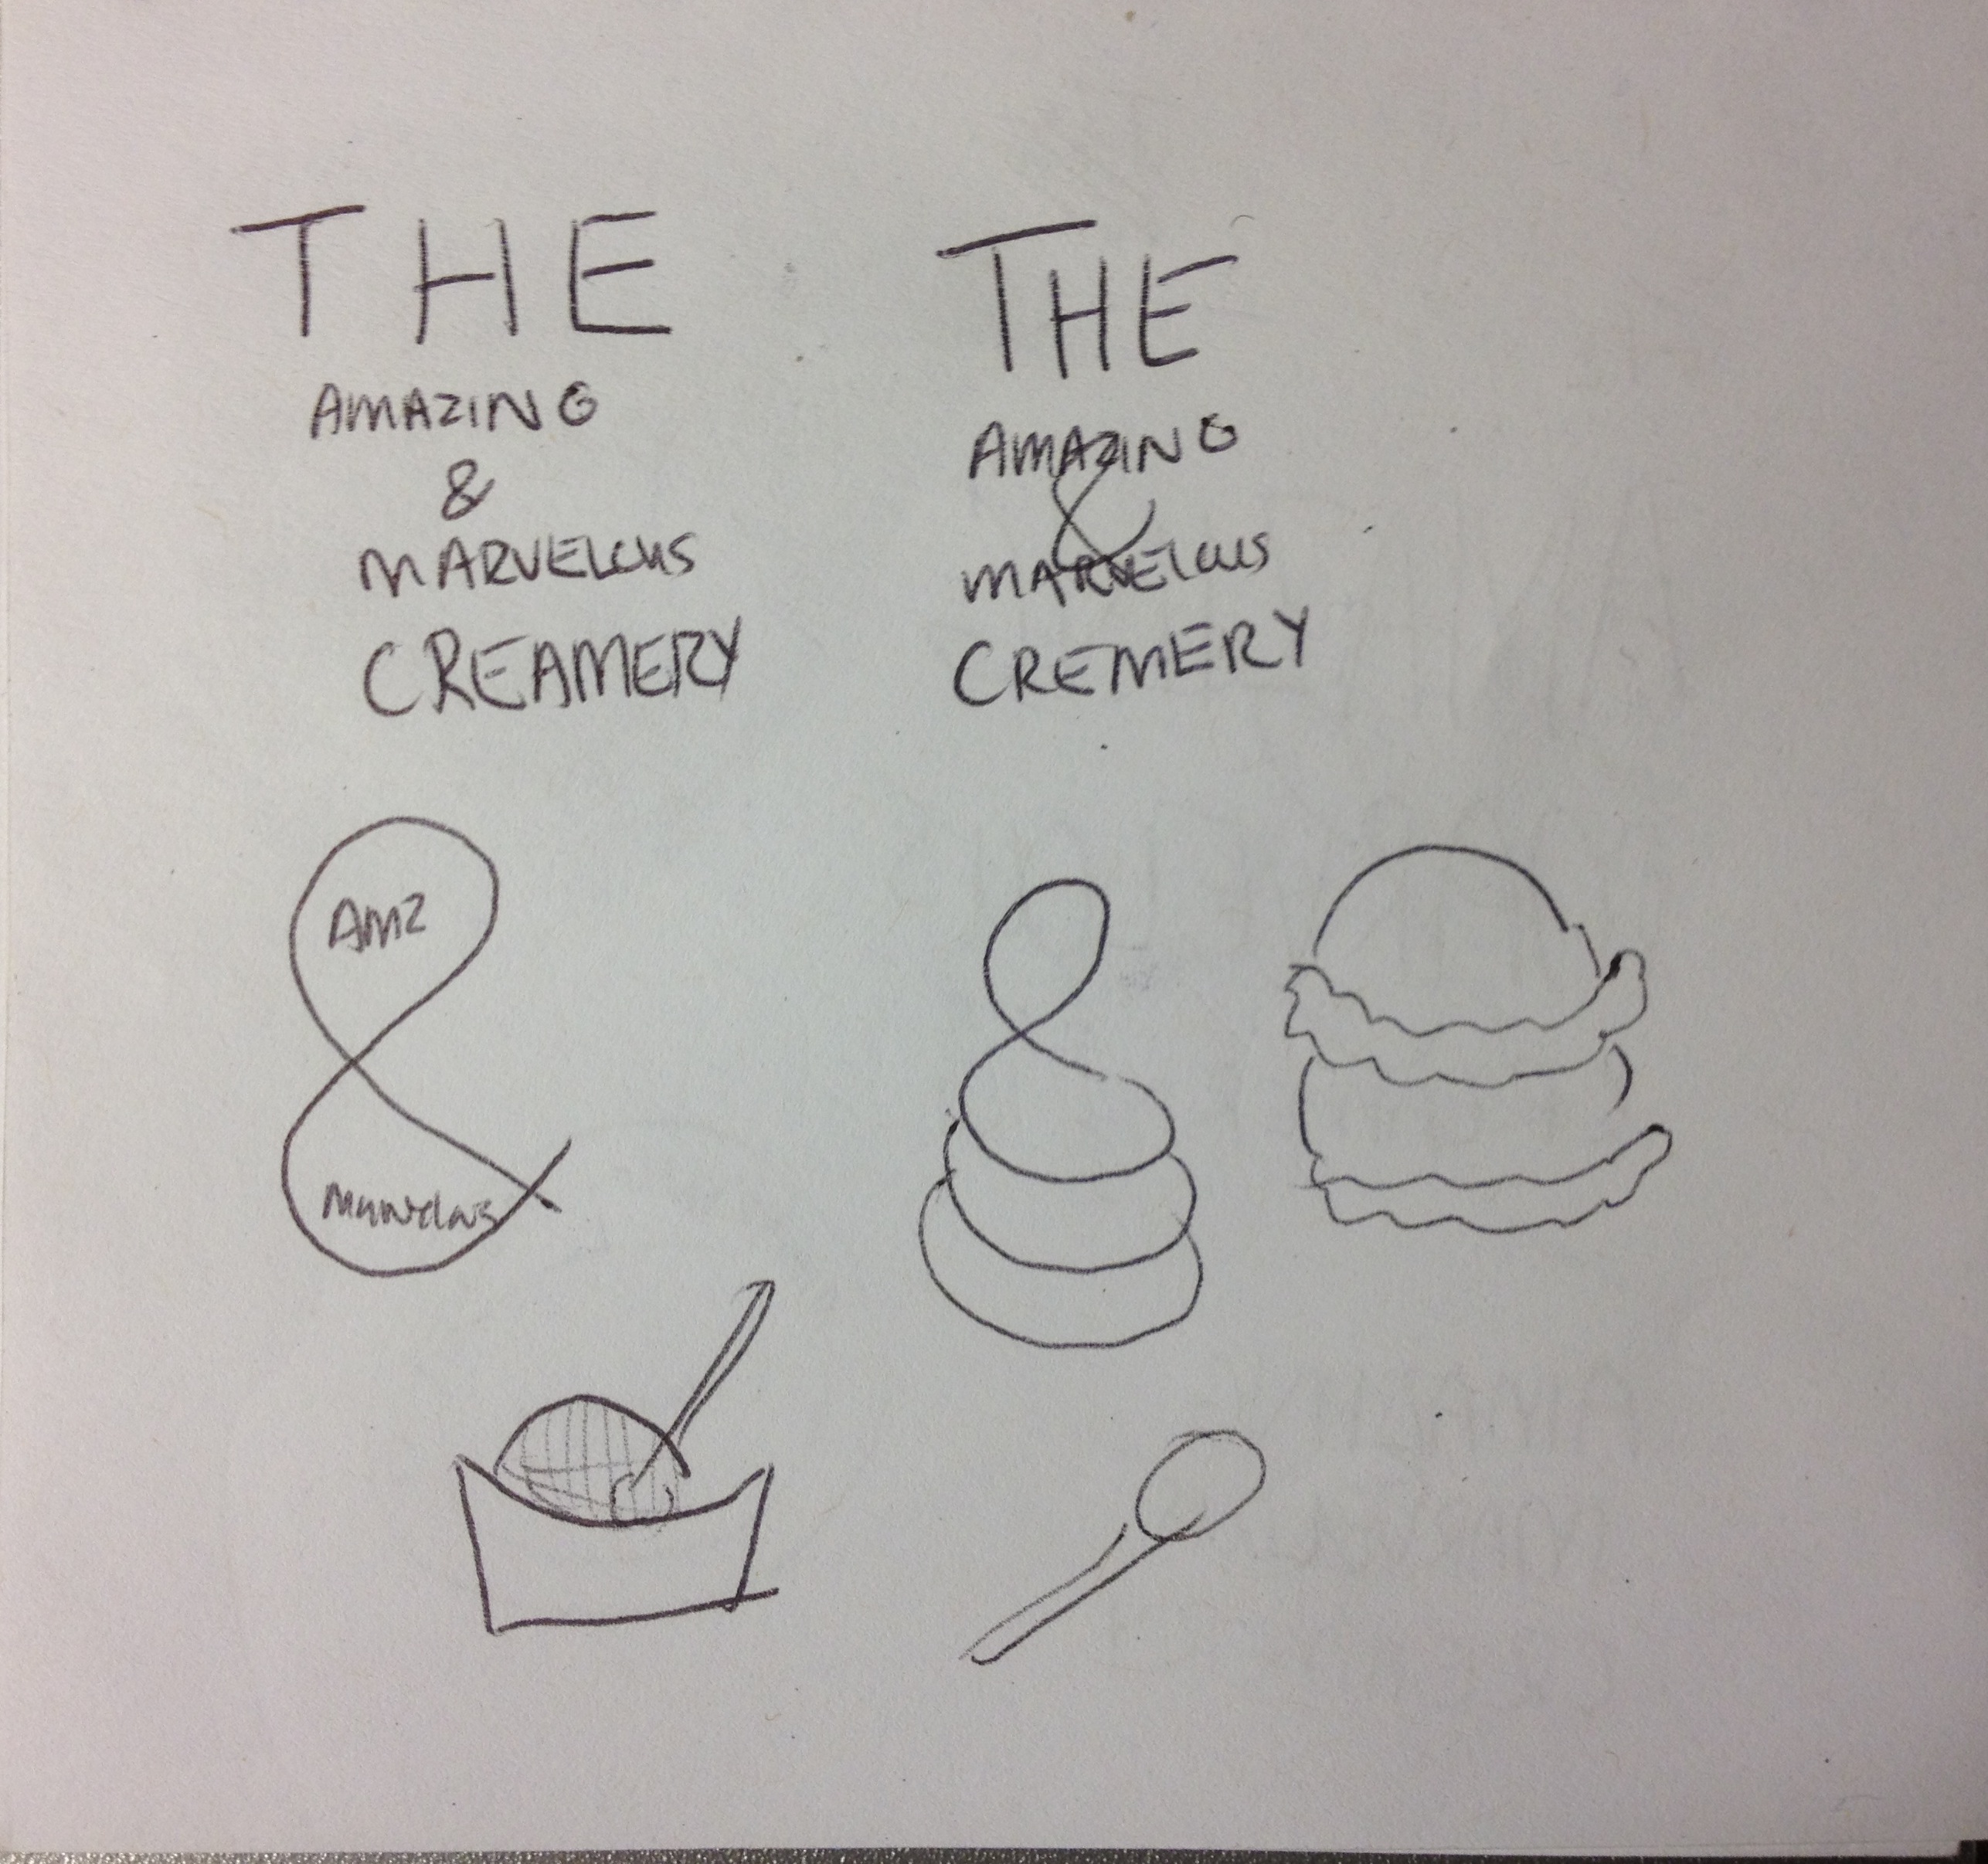 THE
AMAZING
&
MARVELOUS
CREAMERY
THE
AMAZING
&
MARVELOUS
CREMERY
AMZ
Marvelous